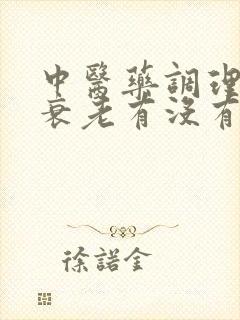 中醫藥調理
衰老有沒有
徐諾金